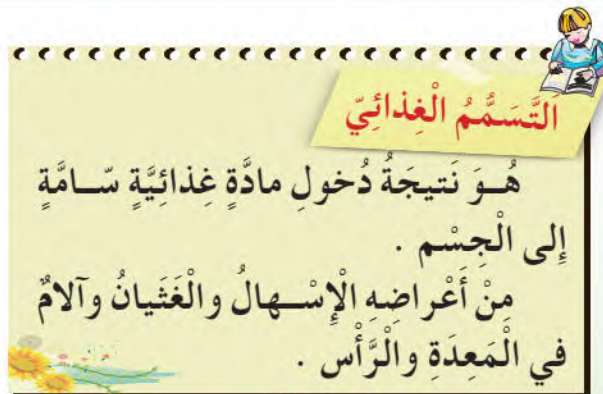 اَلتَّسَمُّمُ الْغِذائِيّ
هُـوَ نَتيجَةُ دُخولِ مادَّةٍ غِذائِيَّةٍ سّـامَّةٍ
إِلى الْجِسْم .
مِنْ أَعْراضِهِ الْإِسْـهالُ والْغَثَيانُ وآلامٌ
في الْمَعِدَةِ والْرَّأْس .